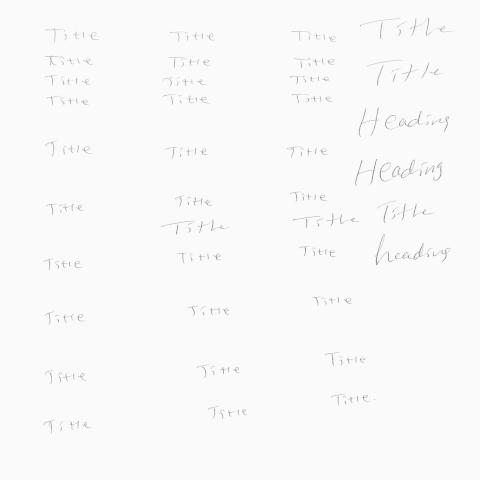 Title Title Title Title
Title Title Title
Title Title Title Title
Title Title Title
Heading
Title Title Title
Heading
Title Title Title
Title Title Title Title
Title Title Title heading
Title Title Title
Title Title Title
Title Title Title